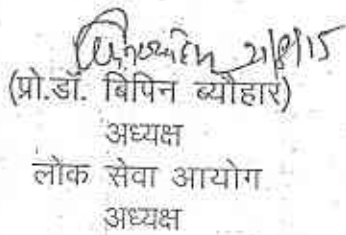 21/8/15
(प्रो.डॉ. बिपिन ब्यौहार)
अध्यक्ष
लोक सेवा आयोग
अध्यक्ष